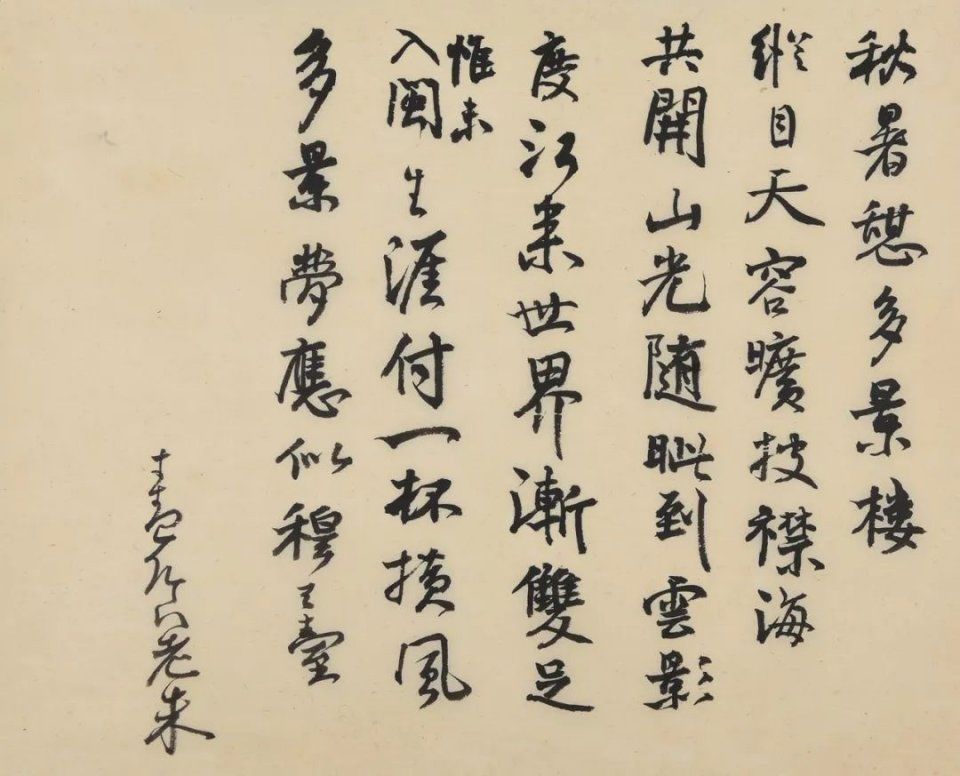 秋暑憩多景楼
縱目天容曠披襟海
共開山光随眺到雲影
度江来世界漸雙足
惟未
入閩生涯付一杯横風
多景夢應似穆王臺
老米